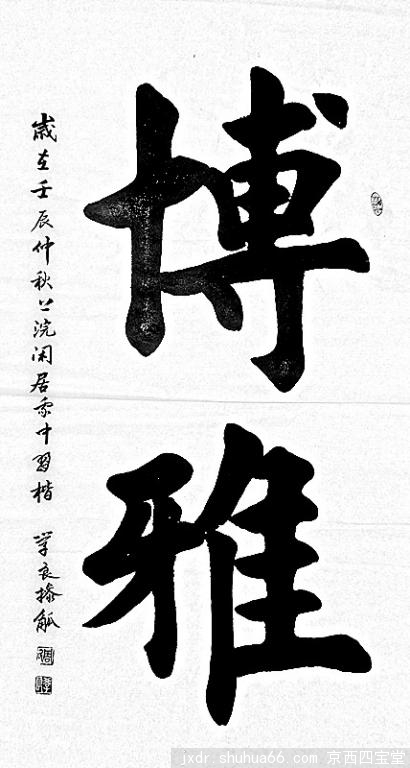 博雅
歲在壬辰仲秋上浣闲居京中習楷 學良操觚
jxdr.shuhua66.com 京西四宝堂